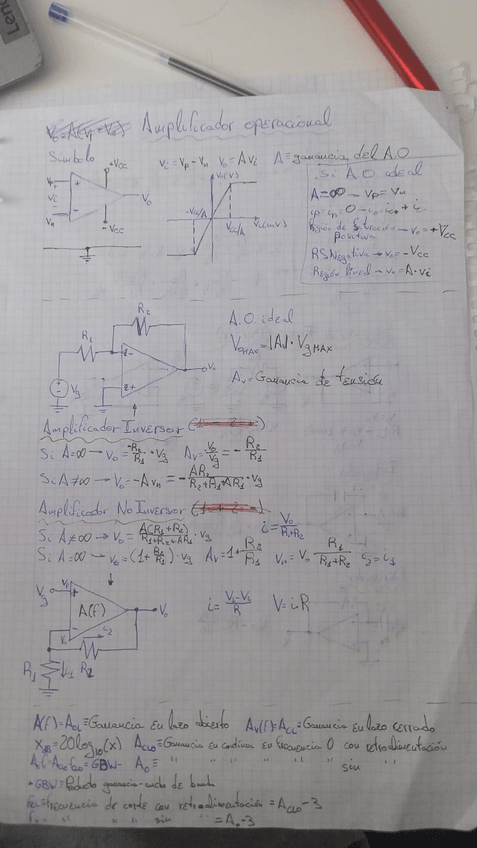 Leno
Amplificador operacional
Símbolo
Vi = Vp - Vn   Vo = A Vi   A ≡ ganancia del A.O
+Vcc
Vp
Vi
Vn
Vo
-Vcc
Vo(V)
-Vcc/A
Vcc/A
Vi(mV)
Si A.O ideal
A = ∞ → Vp = Vn
Región de Saturación → Vo = +Vcc
positiva
RSNegativa → Vo = -Vcc
Región lineal → Vo = A·Vi
R2
R1
Vg
Vo
A.O. ideal
VoMAX = |Av|·VgMAX
Av = Ganancia de tensión
Amplificador Inversor
Si A=∞ → Vo = -R2/R1 · Vg   Av = Vo/Vg = - R2/R1
Si A≠∞ → Vo = -AVn = - AR2/(R2+R1+AR1) · Vg
Amplificador No Inversor
i = Vo/(R1+R2)
Si A≠∞ → Vo = A(R1+R2)/(R1+R2+AR1) · Vg
Si A=∞ → Vo = (1 + R2/R1) · Vg   Av = 1 + R2/R1   Vn = Vo R1/(R1+R2)   i2 = i1
Vg
Vp
A(f)
Vo
i2
R1
i1
R2
V = iR
A(f) = AOL ≡ Ganancia en lazo abierto   Av(f) = ACL ≡ Ganancia en lazo cerrado
XdB = 20log10(x)   ACLO ≡ Ganancia en continua en frecuencia 0 con retroalimentación
Ao ≡ " " " " " sin "
• GBW ≡ Producto ganancia-ancho de banda
≡ frecuencia de corte con retroalimentación = ACLO - 3
" " " sin " = Ao - 3